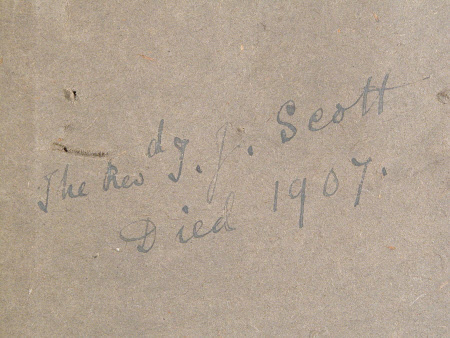 The Revd T. J. Scott
Died 1907.